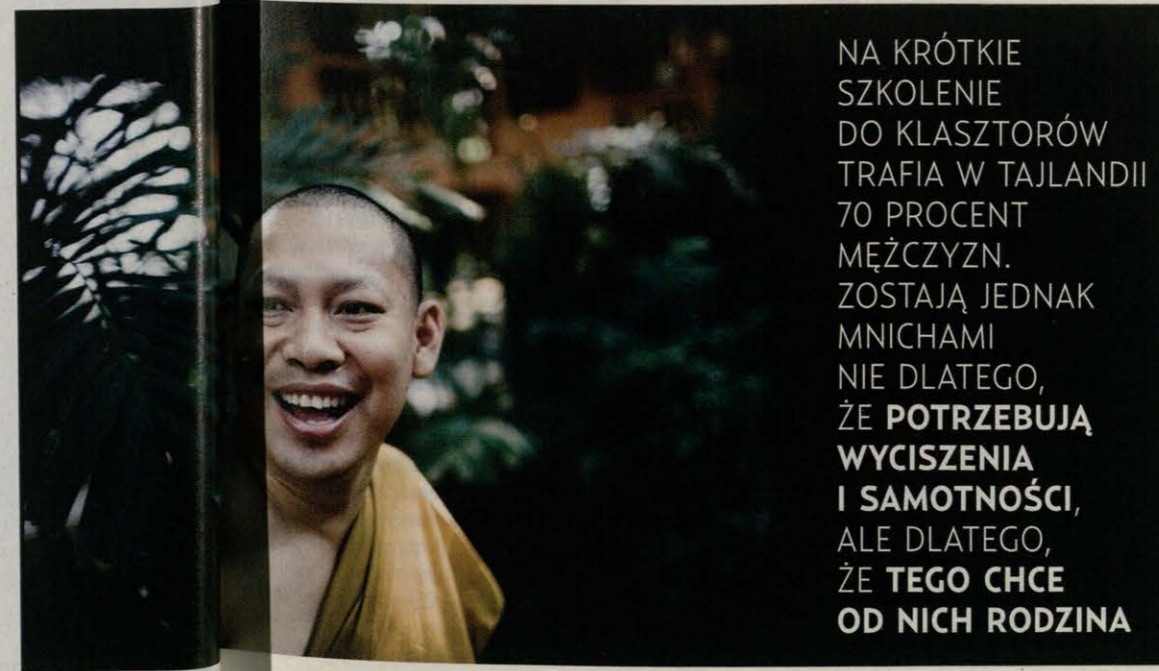 NA KRÓTKIE
SZKOLENIE
DO KLASZTORÓW
TRAFIA W TAJLANDII
70 PROCENT
MĘŻCZYZN.
ZOSTAJĄ JEDNAK
MNICHAMI
NIE DLATEGO,
ŻE POTRZEBUJĄ
WYCISZENIA
I SAMOTNOŚCI,
ALE DLATEGO,
ŻE TEGO CHCE
OD NICH RODZINA